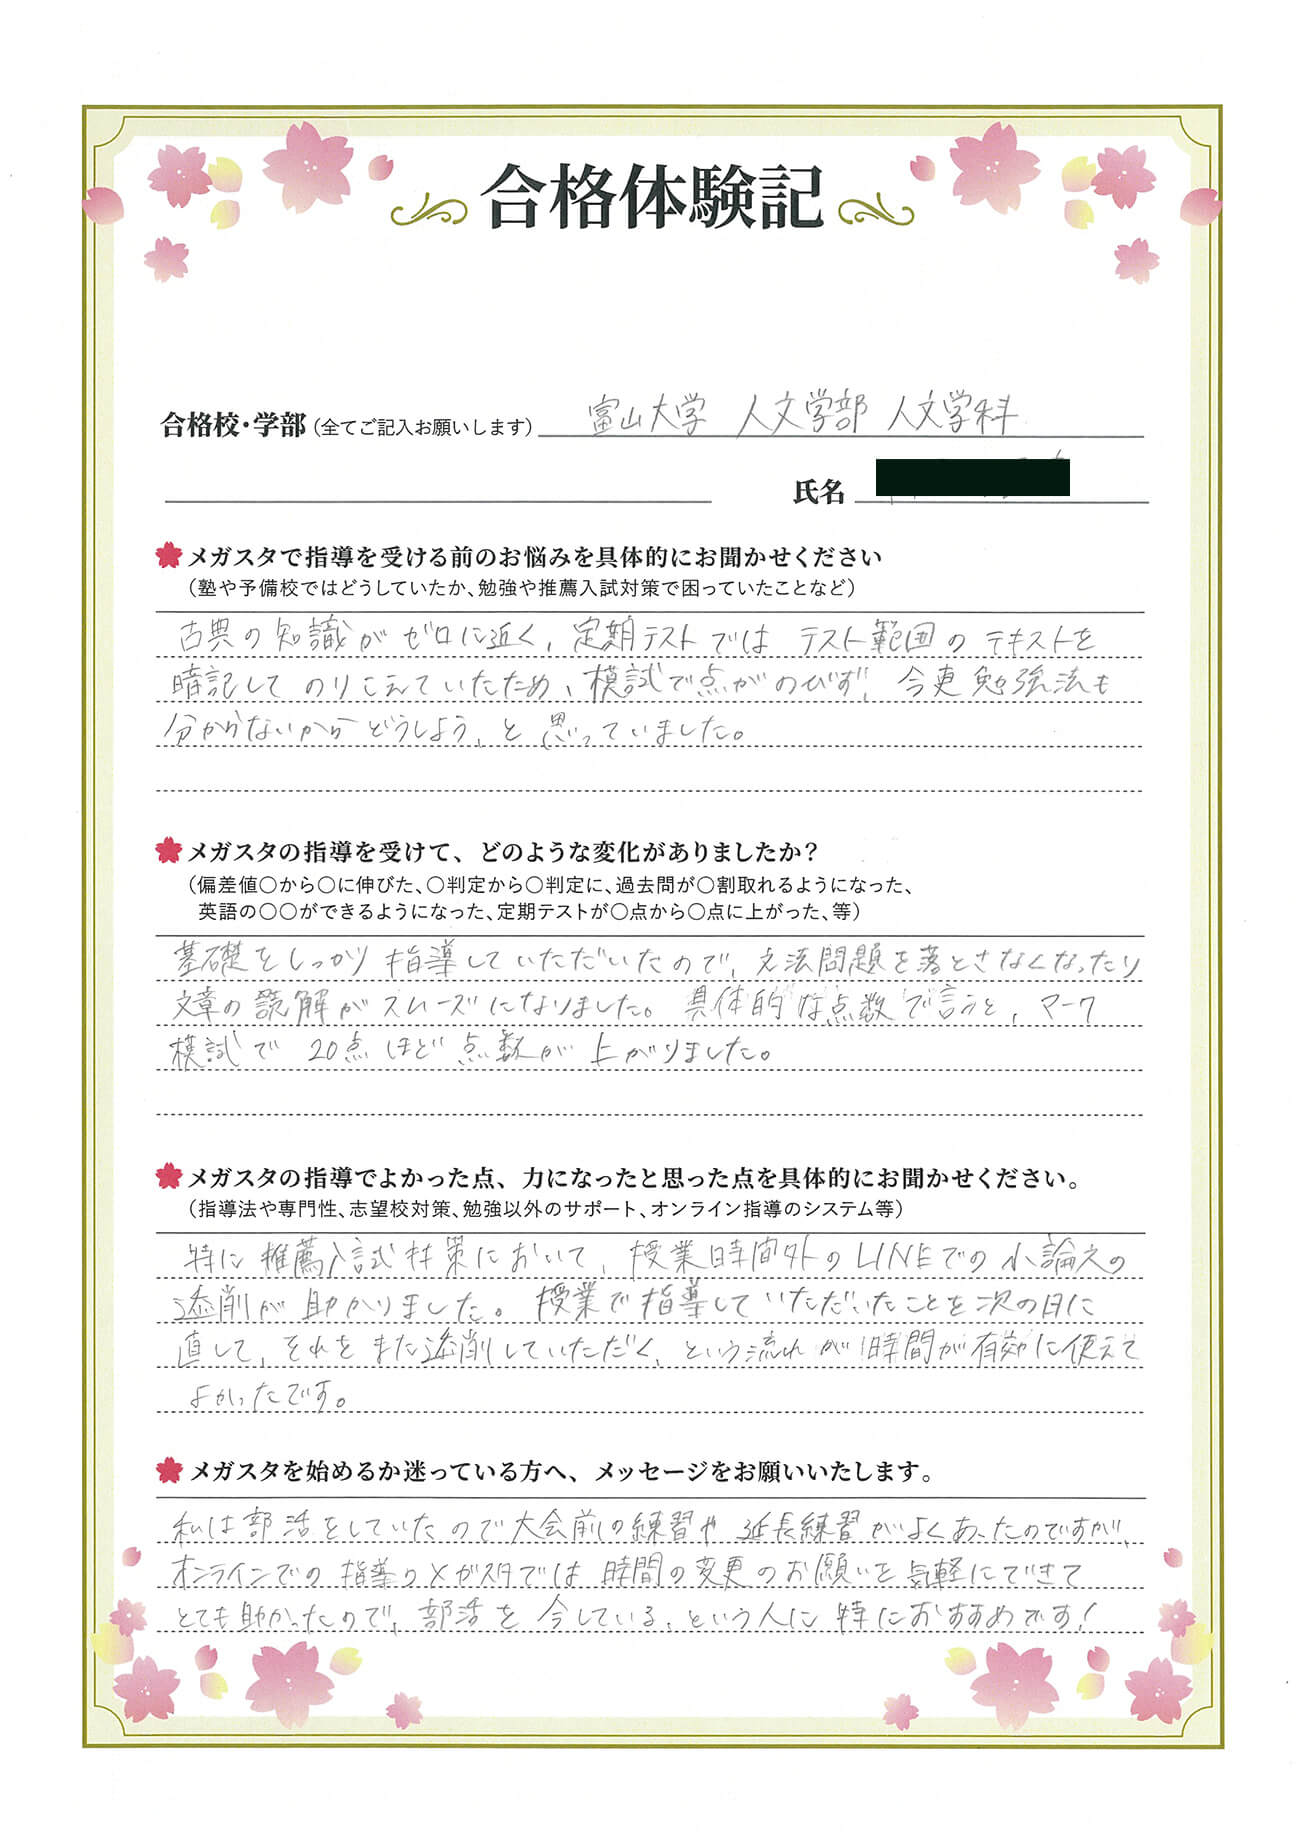 合格体験記
合格校・学部（全てご記入お願いします） 富山大学 人文学部 人文学科
氏名
メガスタで指導を受ける前のお悩みを具体的にお聞かせください
（塾や予備校ではどうしていたか、勉強や推薦入試対策で困っていたことなど）
古典の知識がゼロに近く、定期テストでは テスト範囲のテキストを
暗記してのりこえていたため、模試で点がのびず、今更勉強法も
分からないからどうしよう、と思っていました。
メガスタの指導を受けて、どのような変化がありましたか？
（偏差値〇から〇に伸びた、〇判定から〇判定に、過去問が〇割取れるようになった、
英語の〇〇ができるようになった、定期テストが〇点から〇点に上がった、等）
基礎をしっかり指導していただいたので、文法問題を落とさなくなったり
文章の読解がスムーズになりました。具体的な点数で言うと、マーク
模試で 20点ほど点数が上がりました。
メガスタの指導でよかった点、力になったと思った点を具体的にお聞かせください。
（指導法や専門性、志望校対策、勉強以外のサポート、オンライン指導のシステム等）
特に推薦入試対策において、授業時間外のLINEでの小論文の
添削が助かりました。授業で指導していただいたことを次の日に
直して、それをまた添削していただく、という流れが時間が有効に使えて
よかったです。
メガスタを始めるか迷っている方へ、メッセージをお願いいたします。
私は部活をしていたので大会前の練習や延長練習がよくあったのですが、
オンラインでの指導のメガスタでは時間の変更のお願いを気軽にできて
とても助かったので、部活を今している、という人に特におすすめです！